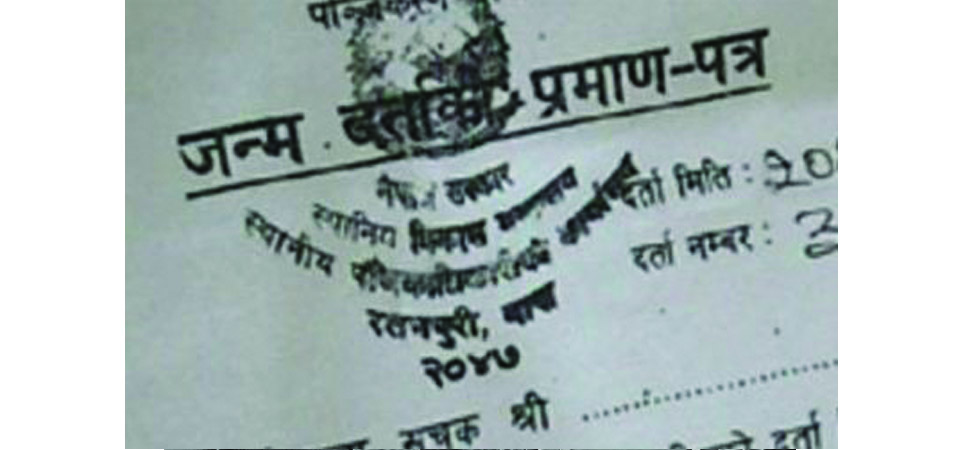 जन्म दर्ताको प्रमाण-पत्र
नेपाल सरकार
स्थानिय विकास मन्त्रालय
स्थानीय पञ्जिकाधिकारीको कार्यालय
रतनपुरी, बारा
२०४७
दर्ता मिति : 20
दर्ता नम्बर : 3
सूचक श्री
दर्ता